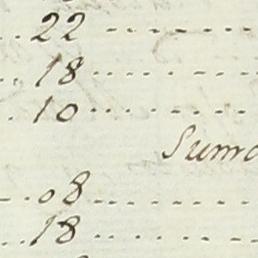 22
18
10
Suma
08
18